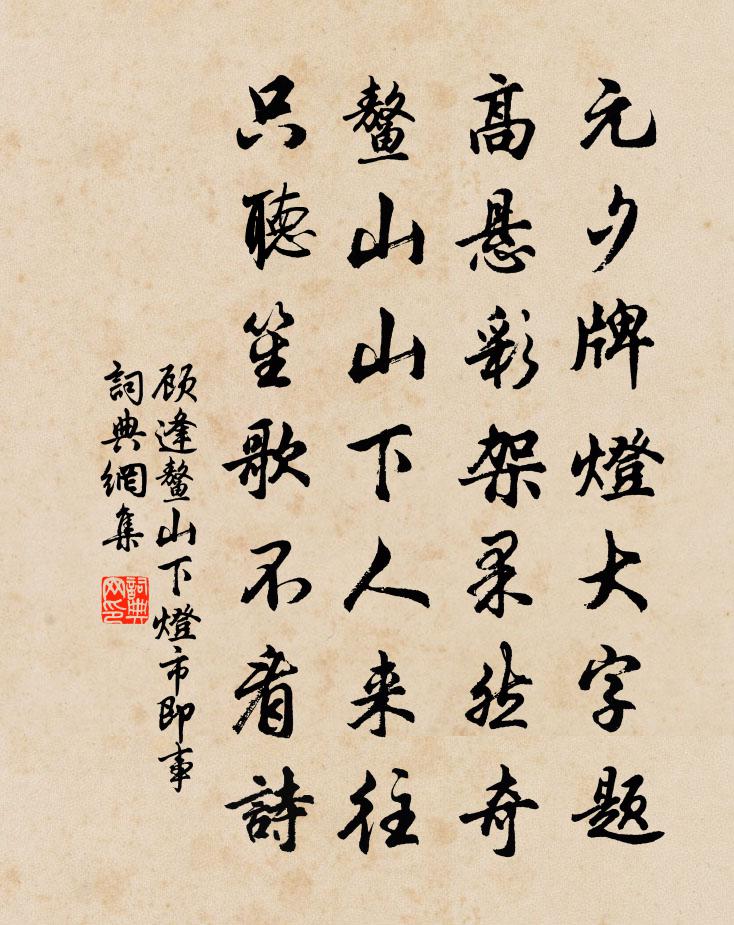 元夕牌燈大字題
高悬彩架果然奇
鳌山山下人来往
只聴笙歌不看詩
顾逢鳌山下燈市即事
詞典網集
詞典網印